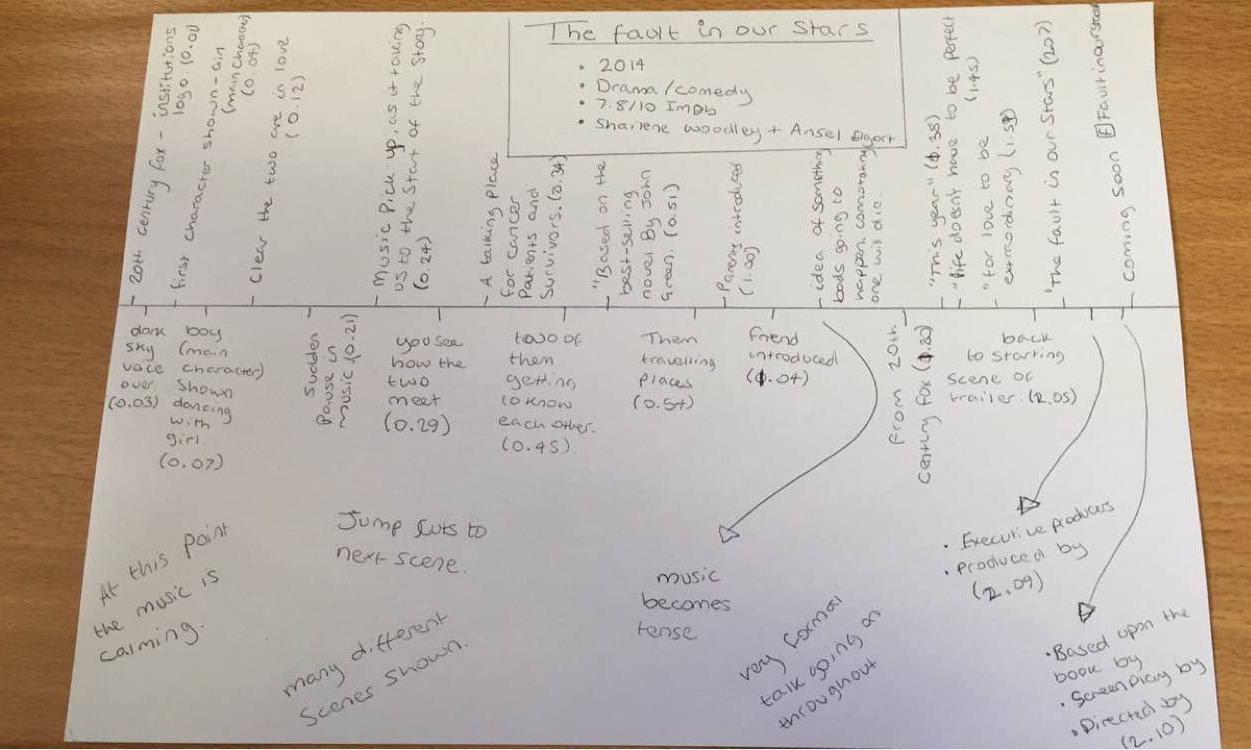 The fault in our stars
• 2014
• Drama/comedy
• 7.8/10 ImDb
• Shailene Woodley + Ansel Elgort
20th century fox - institutions
logo. (0.01)
first character shown - girl
(main character)
(0.04)
Clear the two are in love
(0.12)
Music Pick up, as it taking
us to the Start of the Story.
(0.24)
A talking place
for cancer
Patients and
Survivors. (0.34)
"Based on the
best-selling
novel By John
Green. (0.51)
Parents introduced
(1.00)
idea of something
bads going to
happen, connotating
one will die.
"This year" (1.38)
"life doesnt have to be perfect
(1.45)
"for love to be
extraordinary (1.51)
"The fault in our Stars" (207)
Coming Soon F Faultinourstars
dark
sky
voice
over.
(0.03)
boy
(main
character)
Shown
dancing
with
girl.
(0.07)
Sudden
Pause in
music (0.21)
you see
how the
two
meet
(0.29)
two of
them
getting
to know
each other.
(0.45)
Them
travelling
places
(0.54)
friend
introduced
(1.04)
from 20th
century fox (1.20)
back
to starting
scene of
trailer. (2.05)
At this point
the music is
calming.
Jump cuts to
next scene.
many different
Scenes shown.
music
becomes
tense
very formal
talk going on
throughout
• Executive producers
• produced by
(2.09)
• Based upon the
book by
• Screenplay by
• Directed by
(2.10)